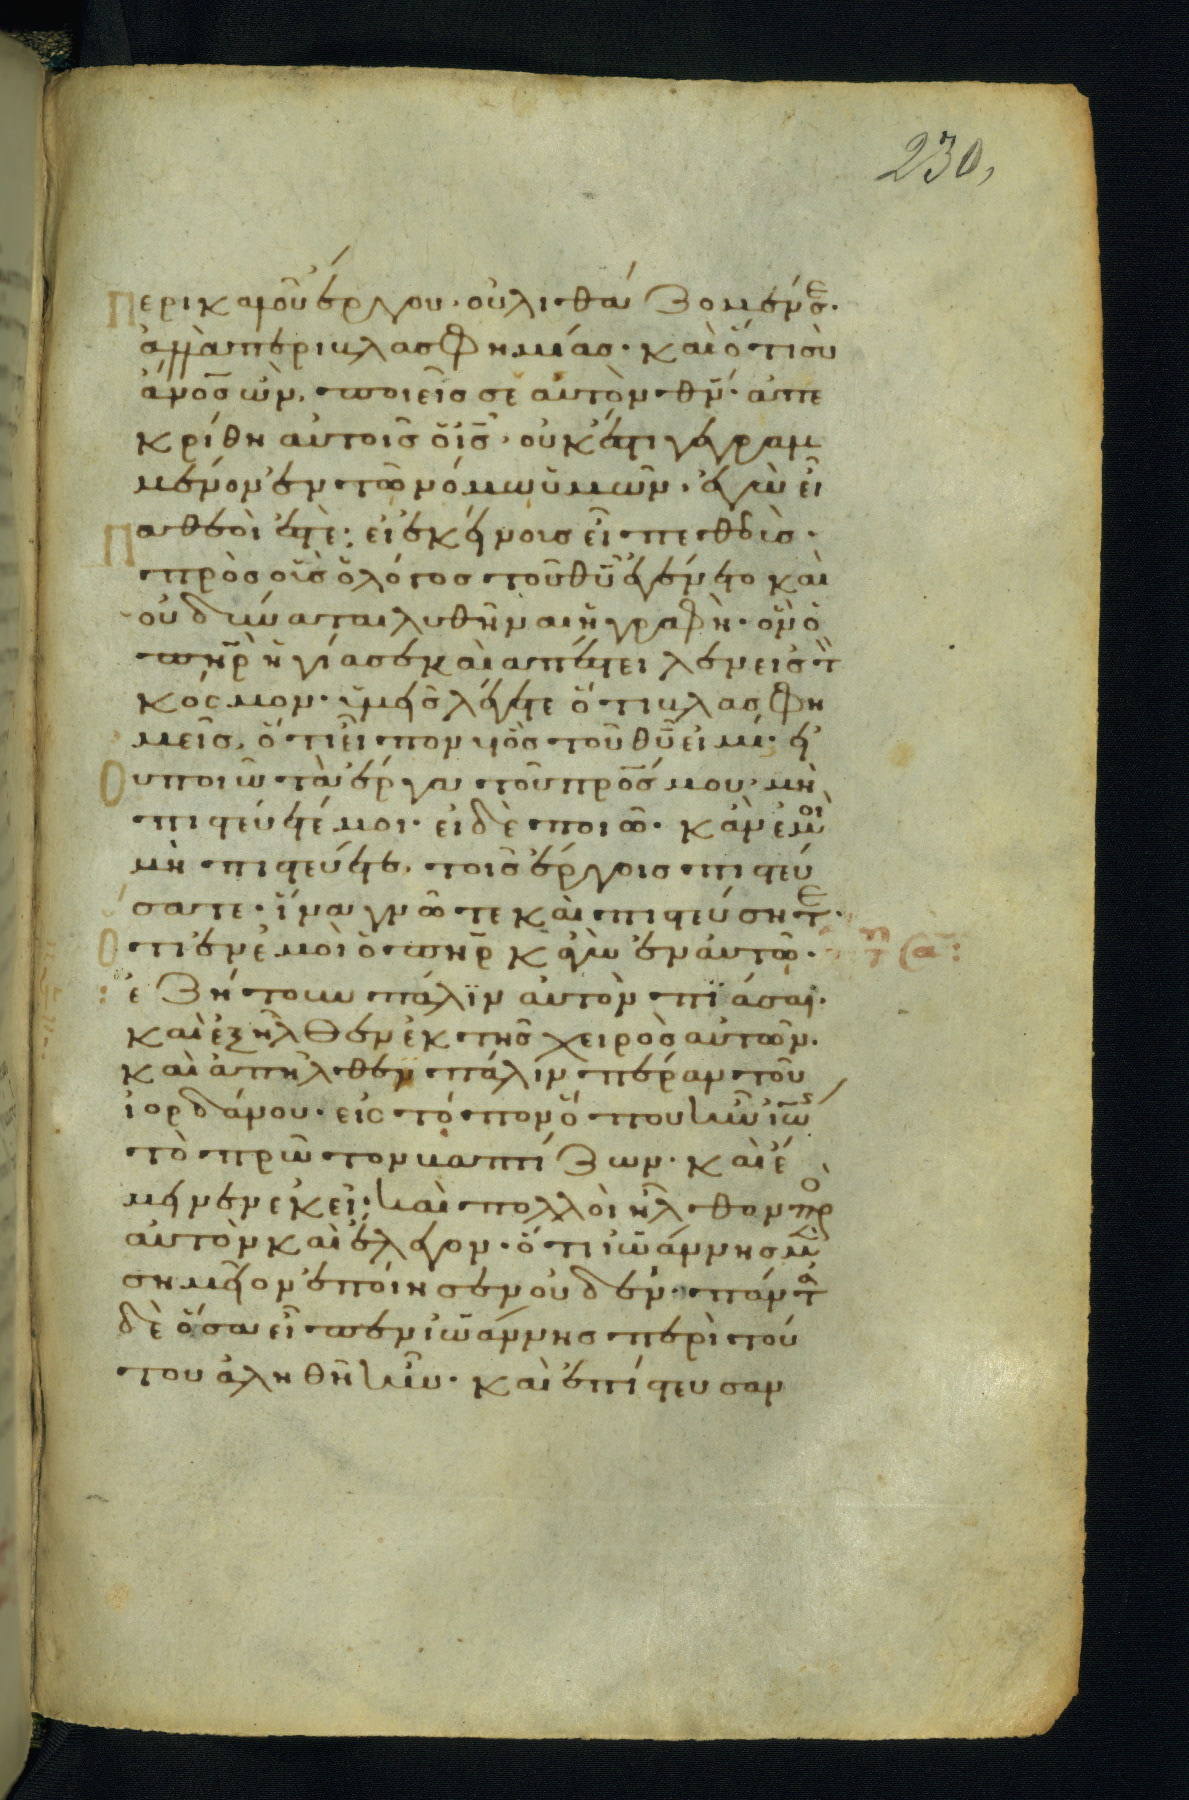 230,
Περι καλοῦ ἔργου· οὐ λιθάζομέν σε·
ἀλλὰ περι βλασφημίας· καὶ ὅτι σὺ
ἄνος ὢν, ποιεῖς σε αυτὸν θν· ἀπε
κρίθη αὐτοῖς ὁ ις· οὐκ ἔστι γεγραμ
μένον ἐν τῶ νόμω ὑμῶν· ἐγὼ εἶ
Πα θεοὶ ἐστὲ· εἰ ἐκείνοις εἶπε θεοὺς·
πρὸς οὓς ὁ λόγος τοῦ θυ ἐγένετο καὶ
οὐ δύναται λυθῆναι ἡ γραφὴ· ὃν ὁ
πηρ ἡγίασε καὶ ἀπέστειλεν εἰς τὸν
κόσμον· ὑμεῖς λέγετε ὅτι βλασφη
μεῖς, ὅτι εἶπον υἱὸς τοῦ θυ εἰμί· εἰ
Ου ποιῶ τὰ ἔργα τοῦ προς μου· μὴ
πιστεύετέ μοι· εἰ δὲ ποιῶ· κἂν ἐμοὶ
μὴ πιστεύητε, τοῖς ἔργοις πιστεύ
σατε· ἵνα γνῶτε καὶ πιστεύσητε·
Οτι ἐν ἐμοὶ ὁ πηρ κἀγὼ ἐν αὐτῶ·
ἐζήτουν πάλϊν αὐτὸν πϊάσαι·
καὶ ἐξῆλθεν ἐκ τῆς χειρὸς αὐτῶν.
καὶ ἀπῆλθεν πάλιν πέραν τοῦ
ἰορδάνου· εἰς τόπον ὅπου ἦν ἰω
τὸ πρῶτον βαπτίζων· καὶ ἔ
μεινεν ἐκεῖ· καὶ πολλοὶ ἦλθον πρὸς
αὐτὸν καὶ ἔλεγον· ὅτι ἰωάννης μὲν
σημεῖον ἐποίησεν οὐδέν· πάντα
δὲ ὅσα εἶπεν ἰωάννης περὶ τού
του ἀληθῆ ἦν· καὶ ἐπίστευσαν